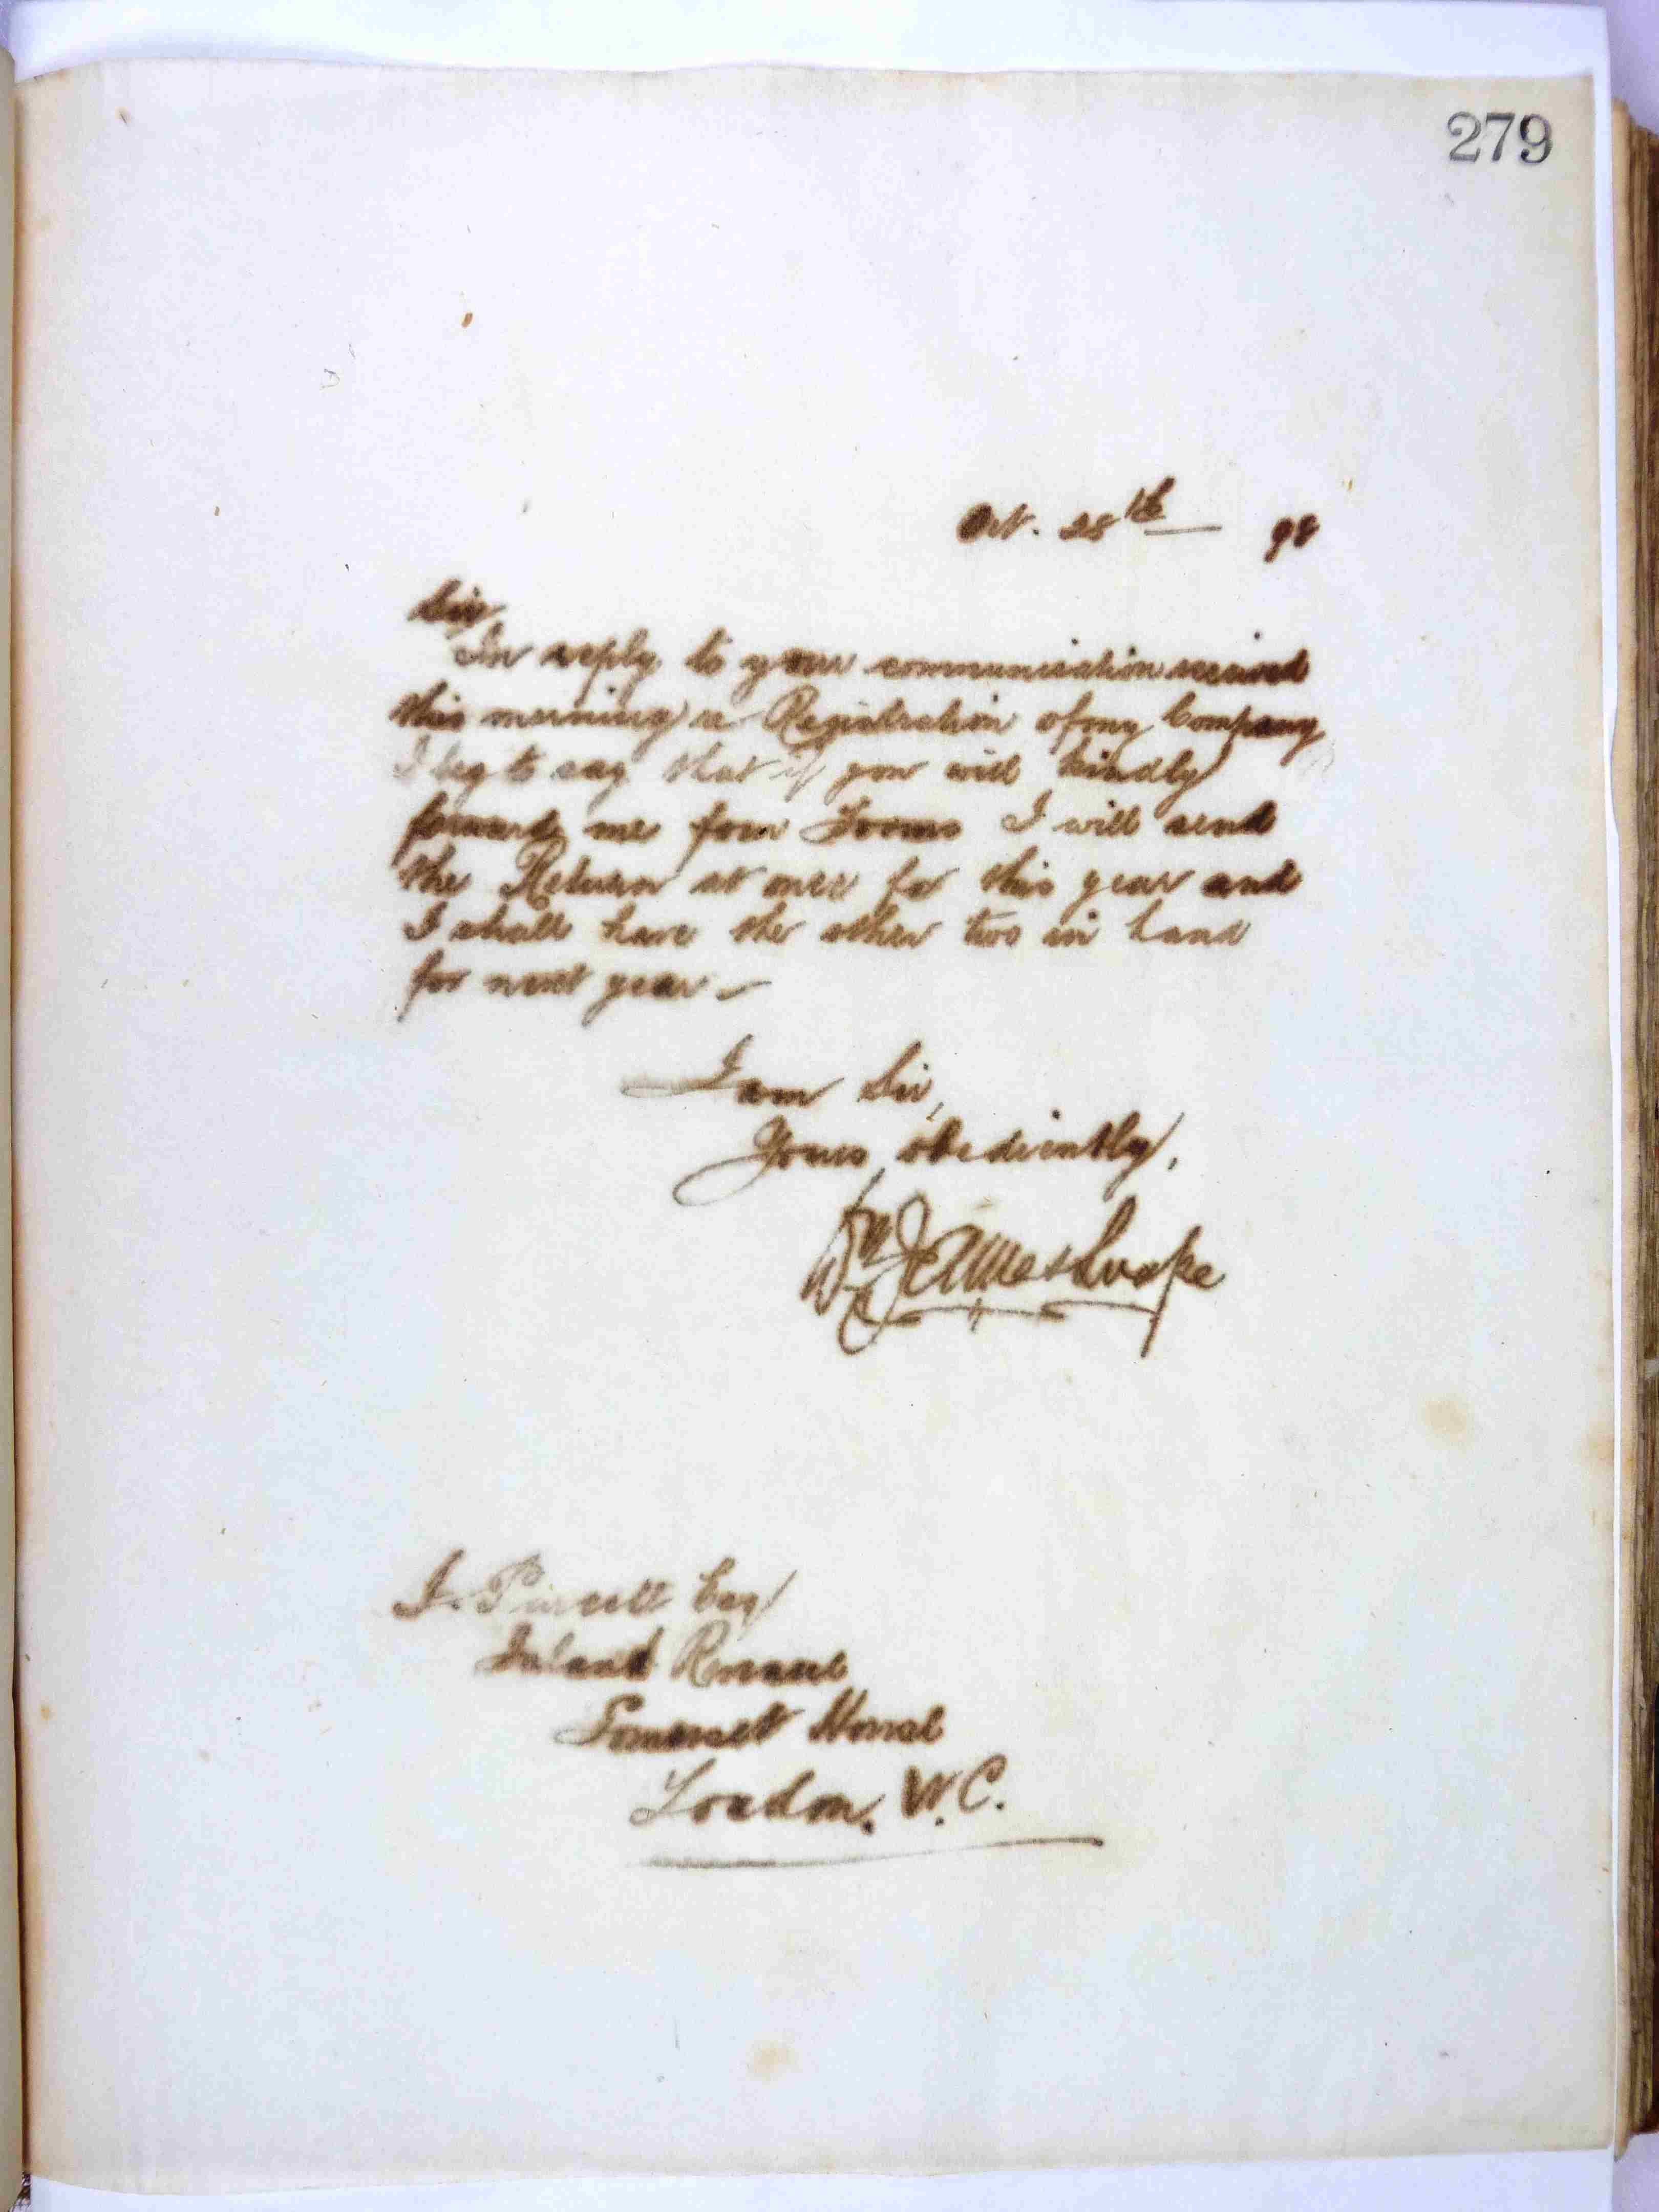 279
Oct. 28th 98
Sir
In reply to your communication received
this morning re Registration of my Company
I beg to say that if you will kindly
forward me four Forms I will send
the Return at once for this year and
I shall have the other two in hand
for next year —
I am Sir,
Yours obediently,
Wm James
J. Purcell Esq
Inland Revenue
Somerset House
London. W.C.